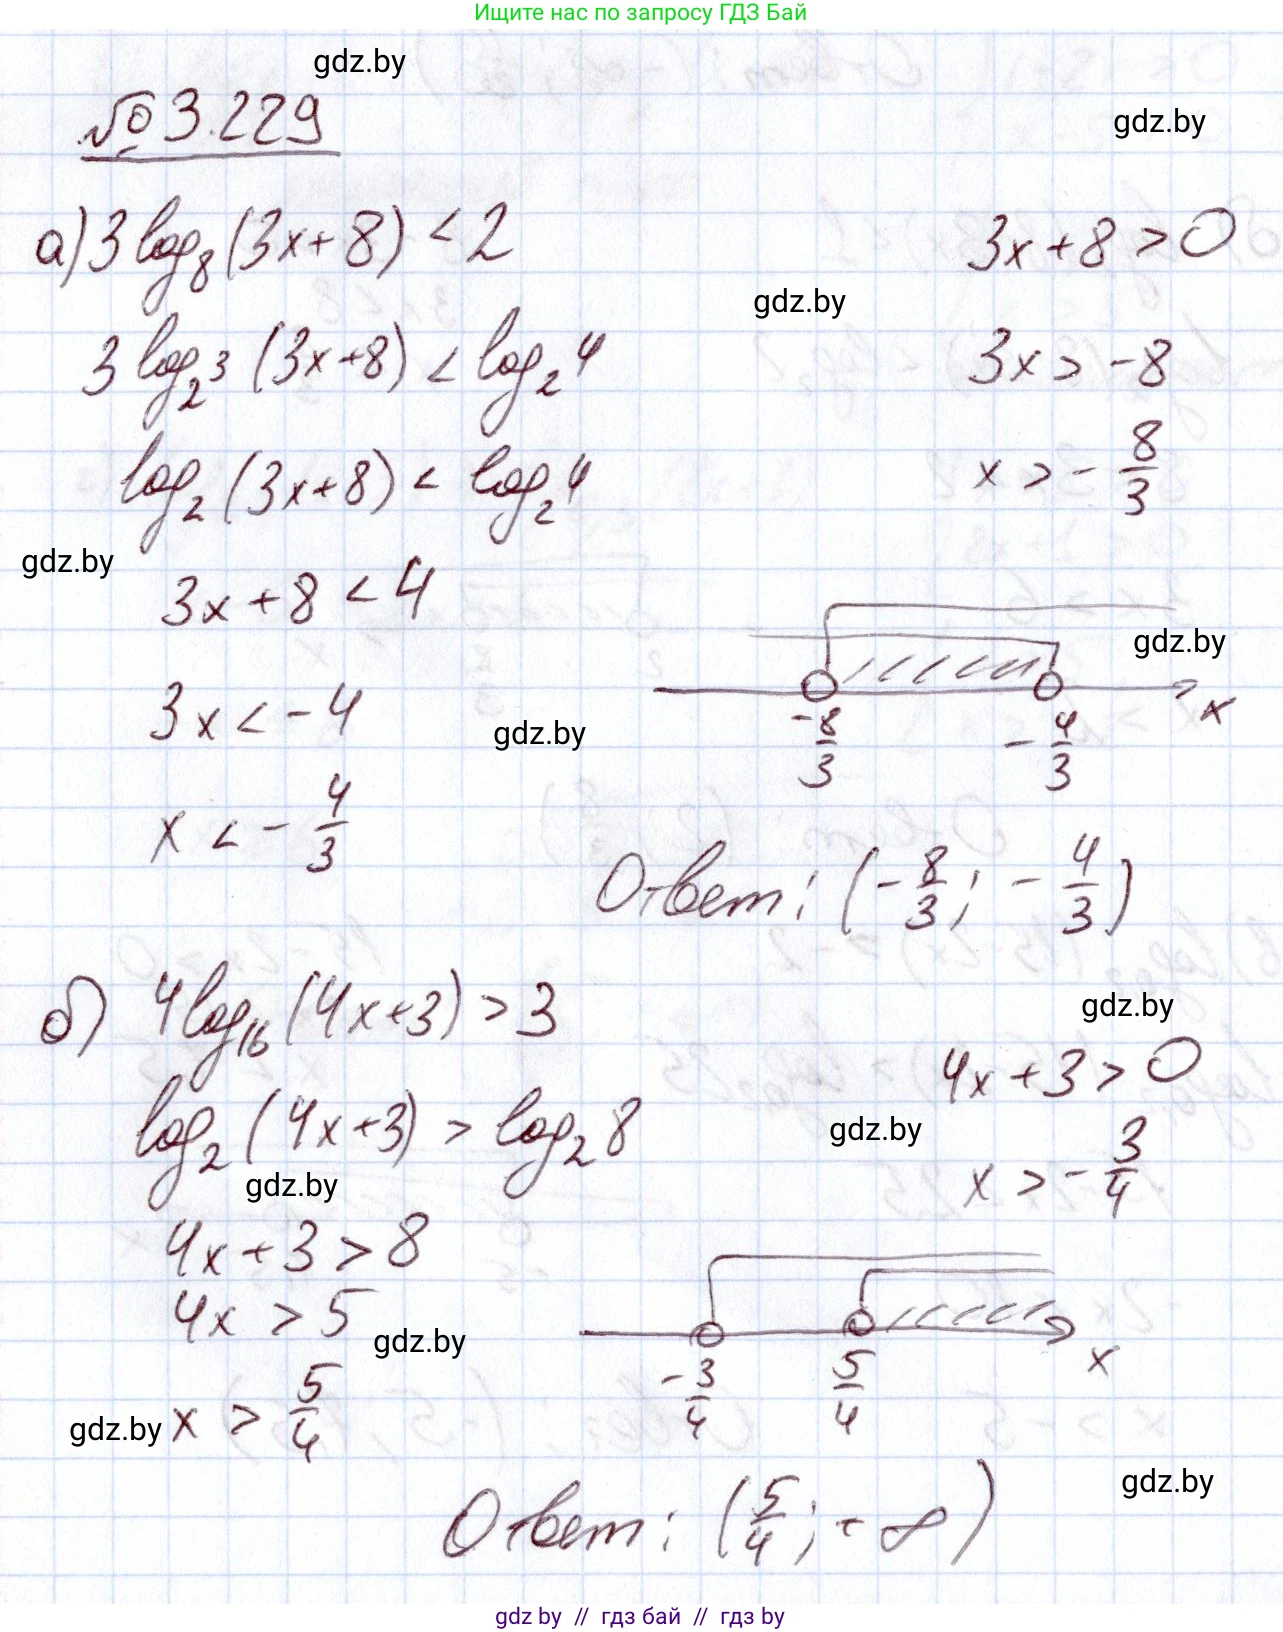 Ищите нас по запросу ГДЗ Бай
gdz.by
№ 3.229
gdz.by
а) 3 log₈ (3x+8) < 2
3x+8 > 0
gdz.by
3 log₂³ (3x+8) < log₂ 4
3x > -8
log₂ (3x+8) < log₂ 4
x > - 8/3
gdz.by
3x + 8 < 4
gdz.by
3x < -4
gdz.by
-8/3 - 4/3 x
x < - 4/3
Ответ: (- 8/3; - 4/3)
б) 4 log₁₆ (4x+3) > 3
gdz.by
4x + 3 > 0
log₂ (4x+3) > log₂ 8
gdz.by
x > - 3/4
gdz.by
4x + 3 > 8
4x > 5
gdz.by
-3/4 5/4 x
gdz.by x > 5/4
gdz.by
Ответ: (5/4; +∞)
gdz by // гдз бай // гдз by